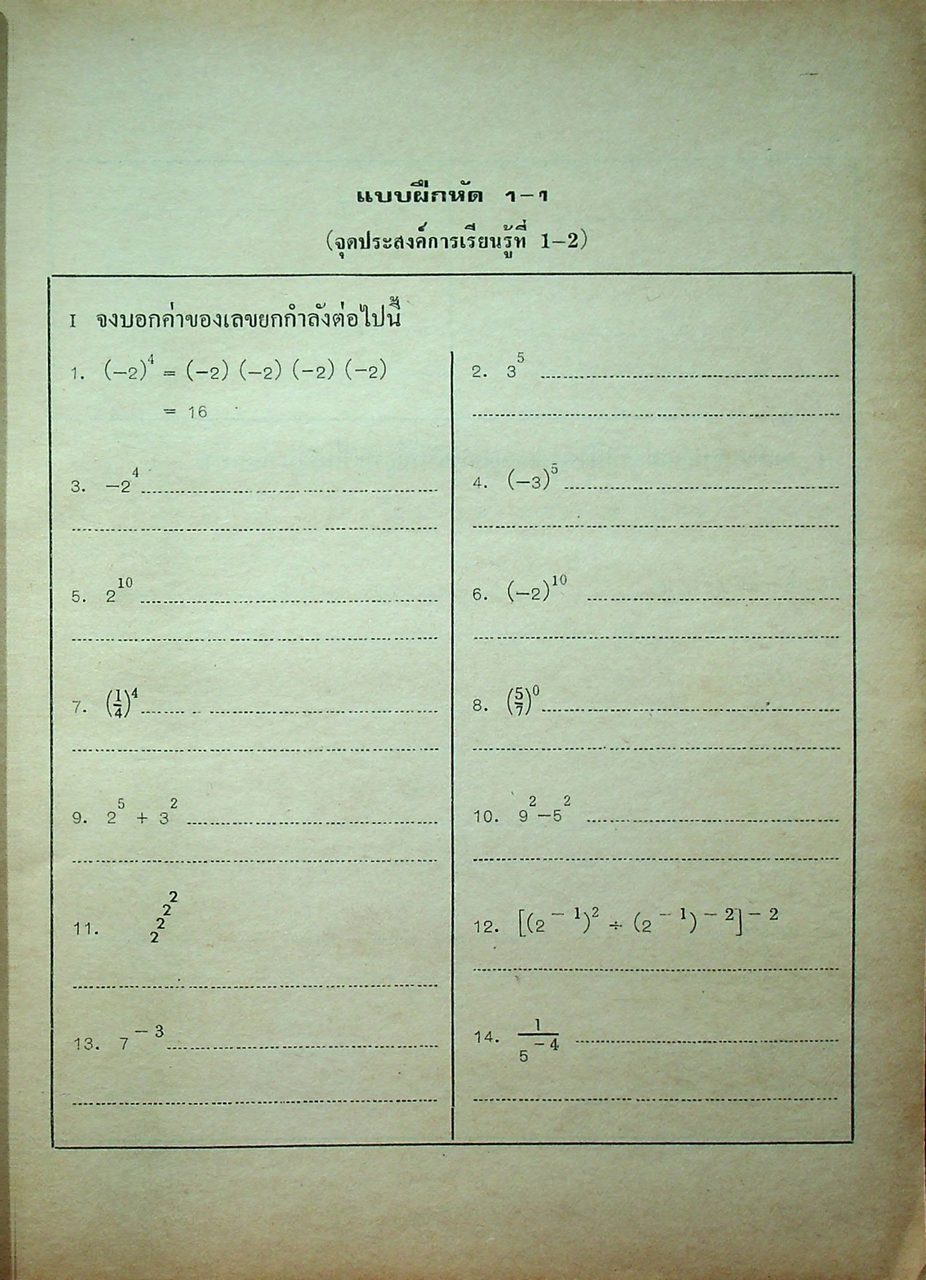 แบบฝึกหัด ๑-๑
(จุดประสงค์การเรียนรู้ที่ 1-2)
I จงบอกค่าของเลขยกกำลังต่อไปนี้
1. (-2)⁴ = (-2) (-2) (-2) (-2)
= 16
2. 3⁵
3. -2⁴
4. (-3)⁵
5. 2¹⁰
6. (-2)¹⁰
7. (1/4)⁴
8. (5/7)⁰
9. 2⁵ + 3²
10. 9² -5²
11. 2^2^2^2
12. [(2⁻¹)² ÷ (2⁻¹)⁻²]⁻²
13. 7⁻³
14. 1/5⁻⁴